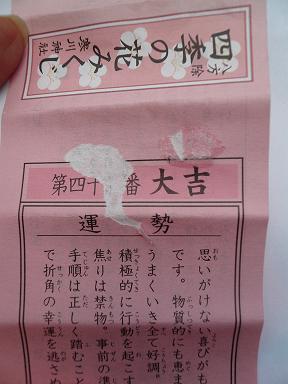 八方除
寒川神社
四季の花みくじ
第四十 番 大吉
運 勢
思いがけない喜びがも
です。物質的にも恵ま
うまくいき全て好調。
積極的に行動を起こす
焦りは禁物。事前の準
手順は正しく踏むこと
で折角の幸運を逃さぬ